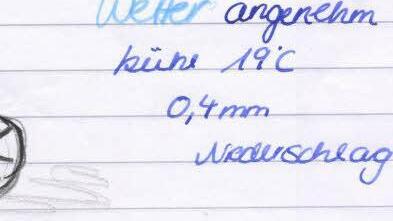 Wetter angenehm
kühl 19°C
0,4mm
Niederschlag